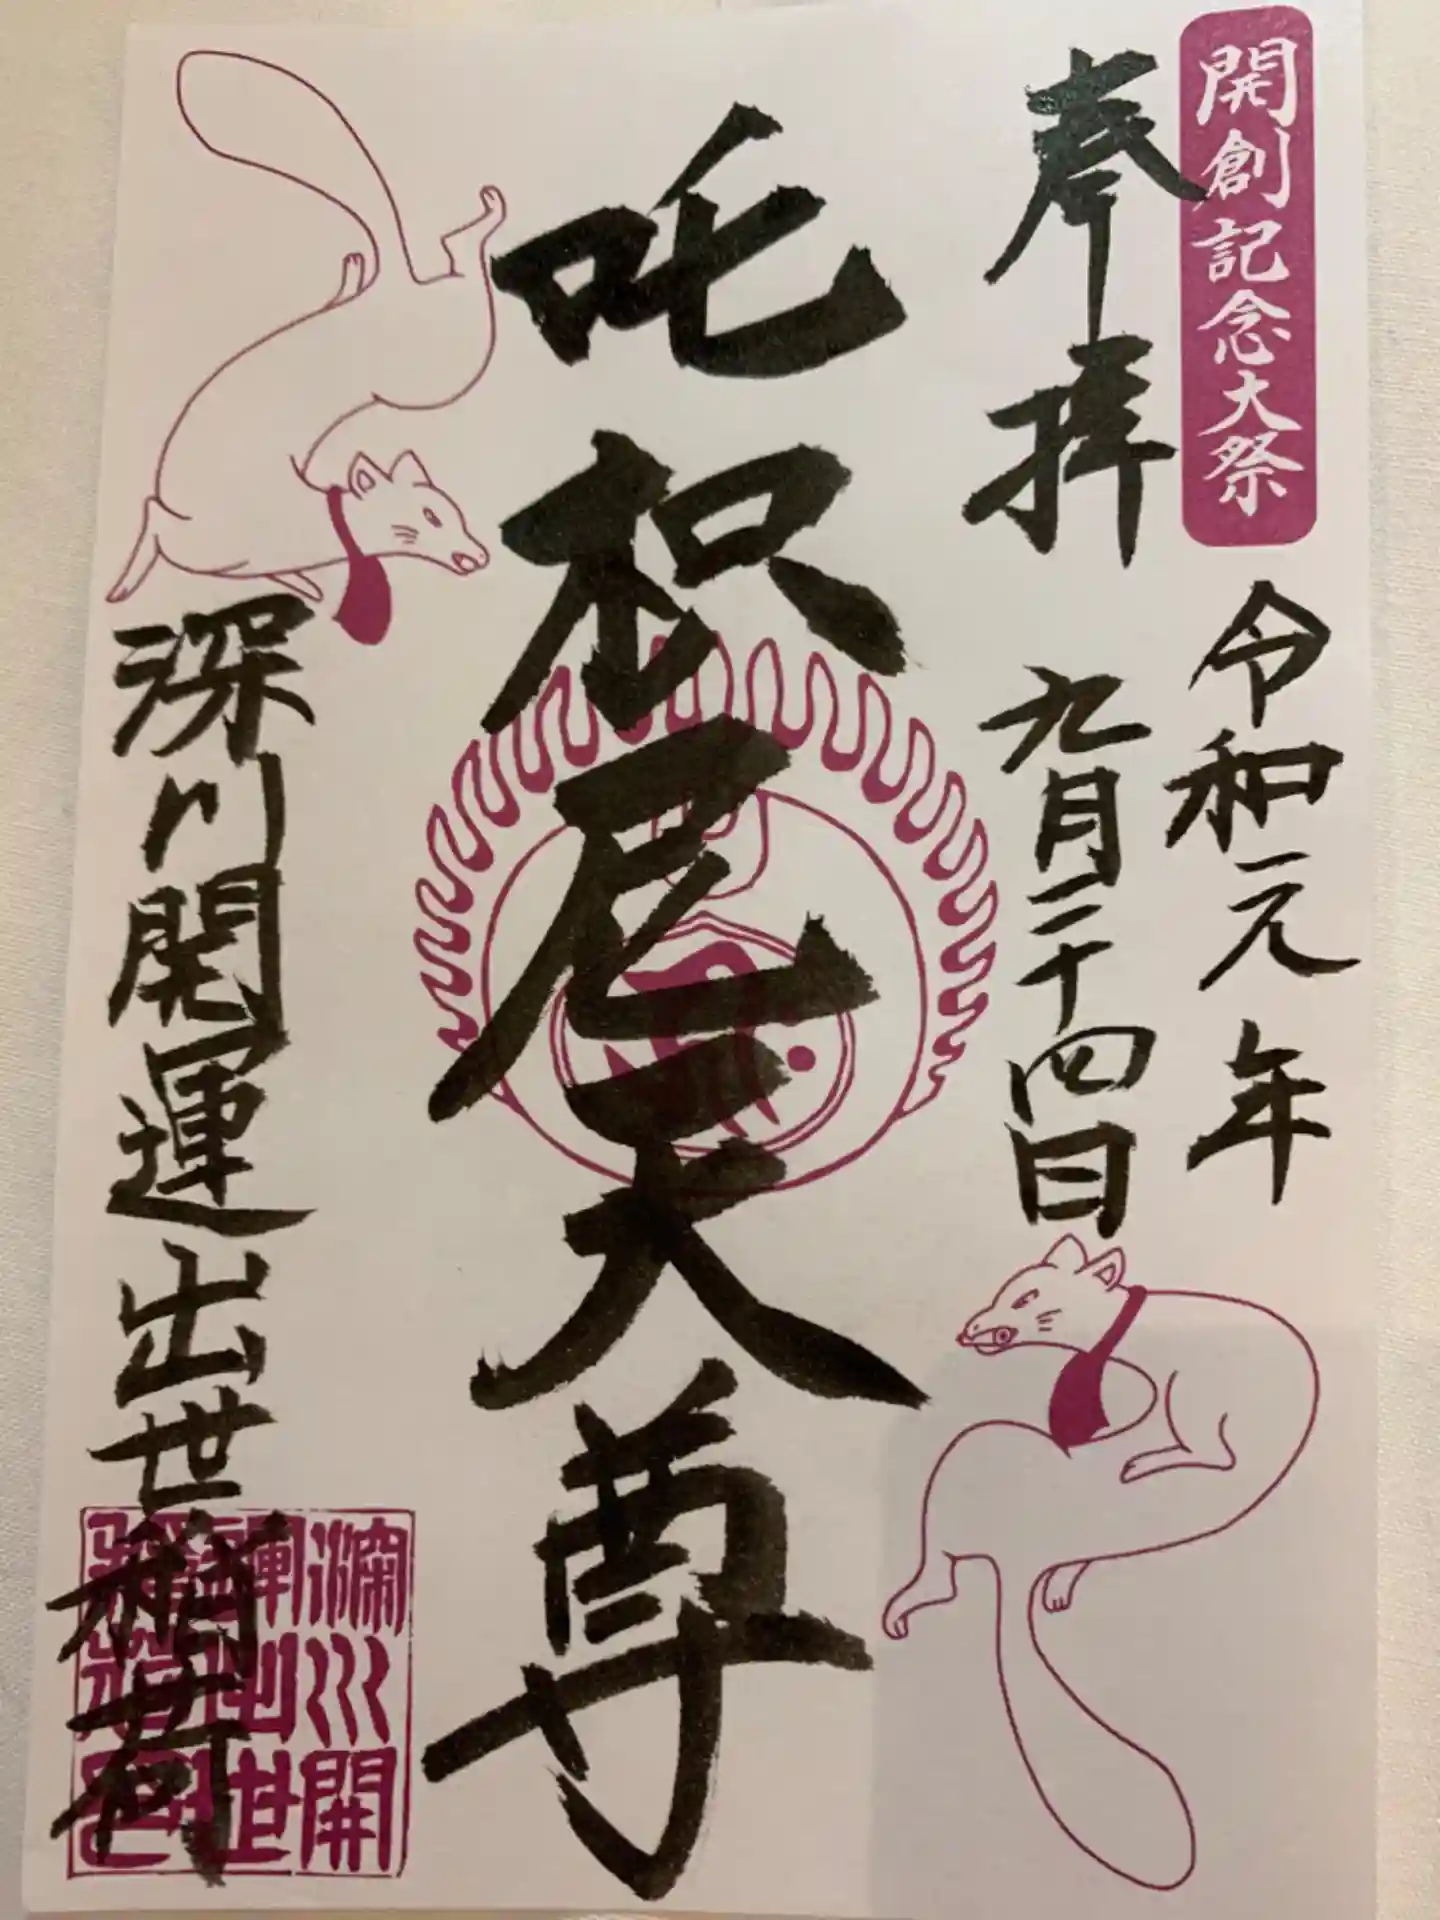 開創記念大祭
奉拝
令和元年
九月二十四日
吒枳尼天尊
深川開運出世稲荷
深川開
運出世
稲荷